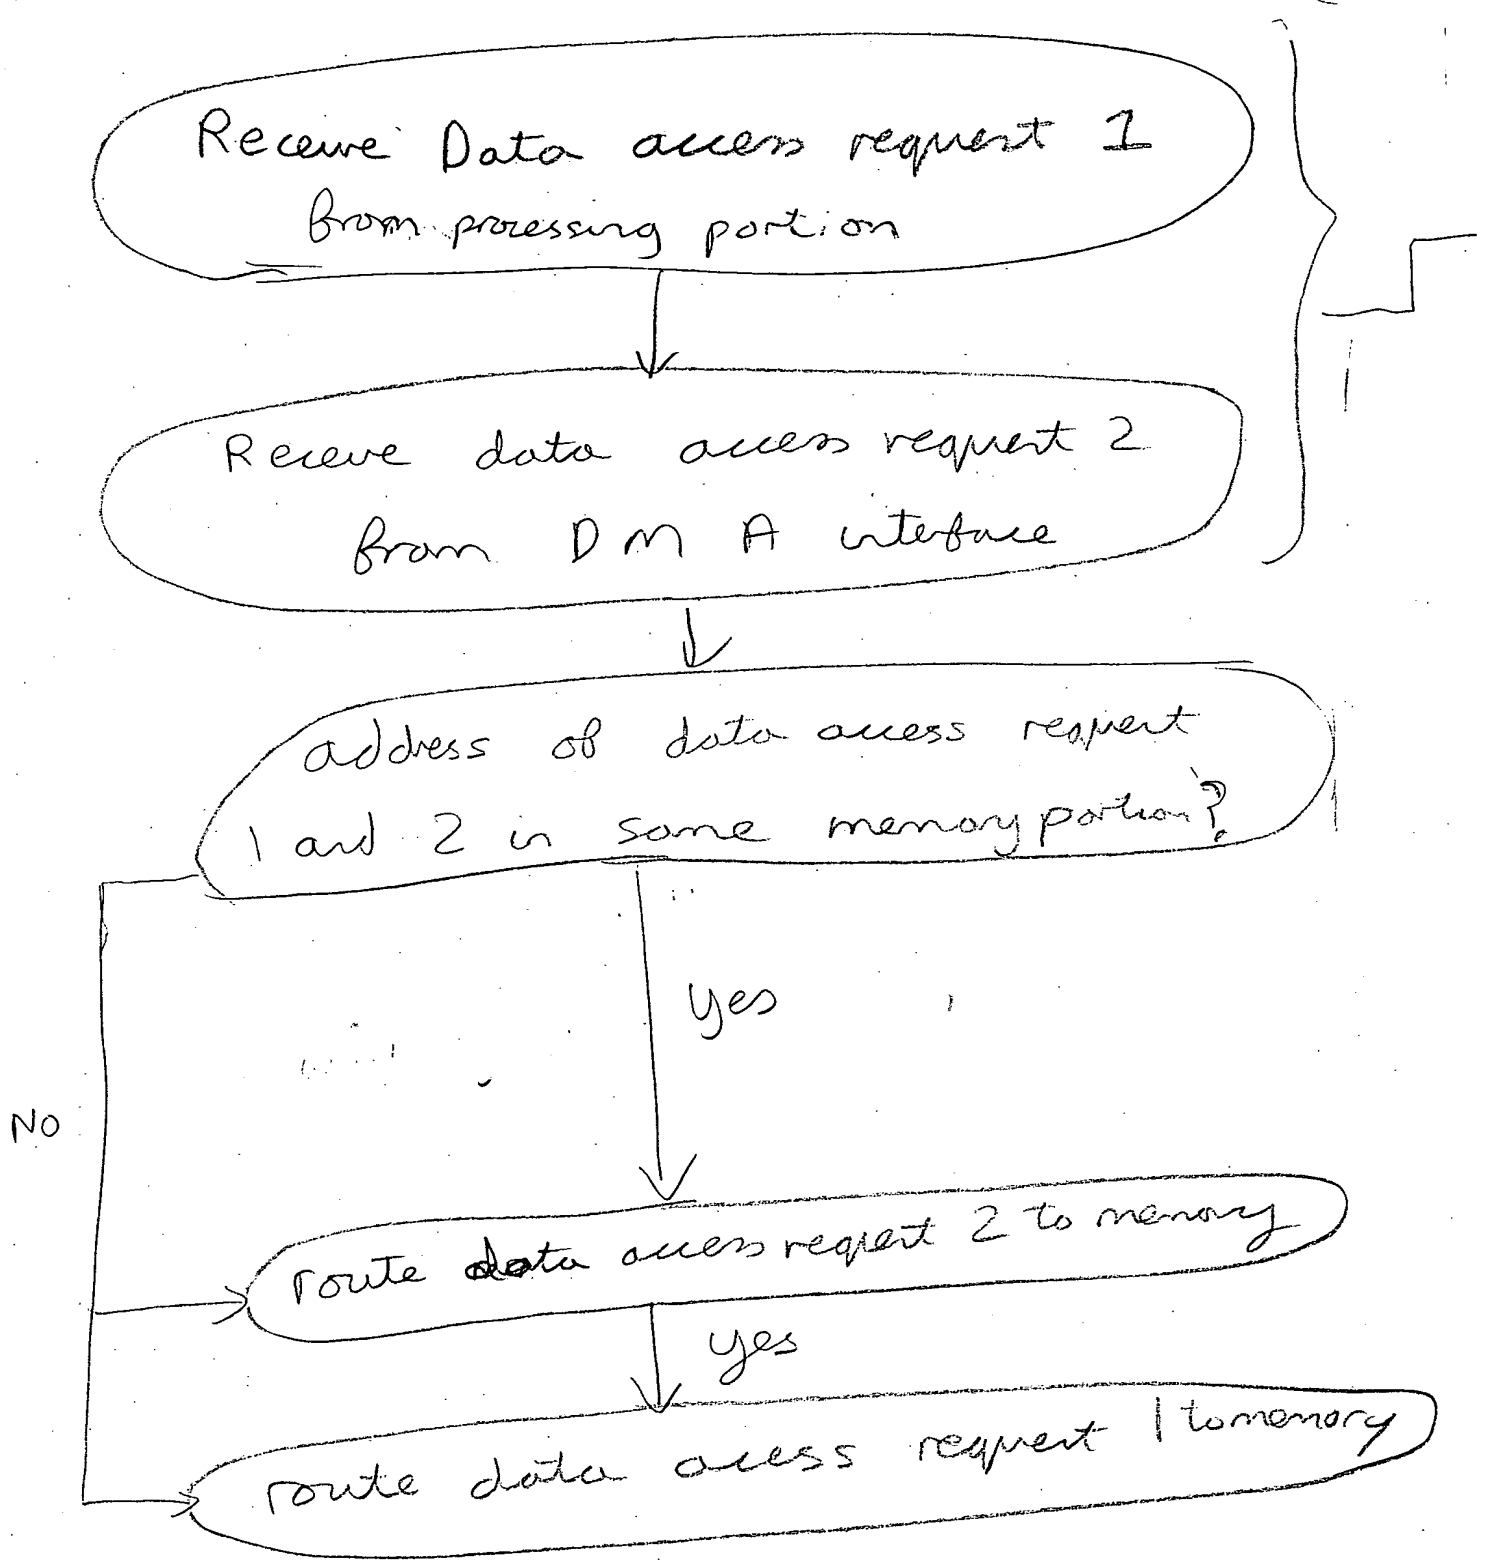 Receive Data access request 1
from processing portion
Receive data access request 2
from DMA interface
address of data access request
1 and 2 in same memory portion?
yes
NO
route data access request 2 to memory
yes
route data access request 1 to memory